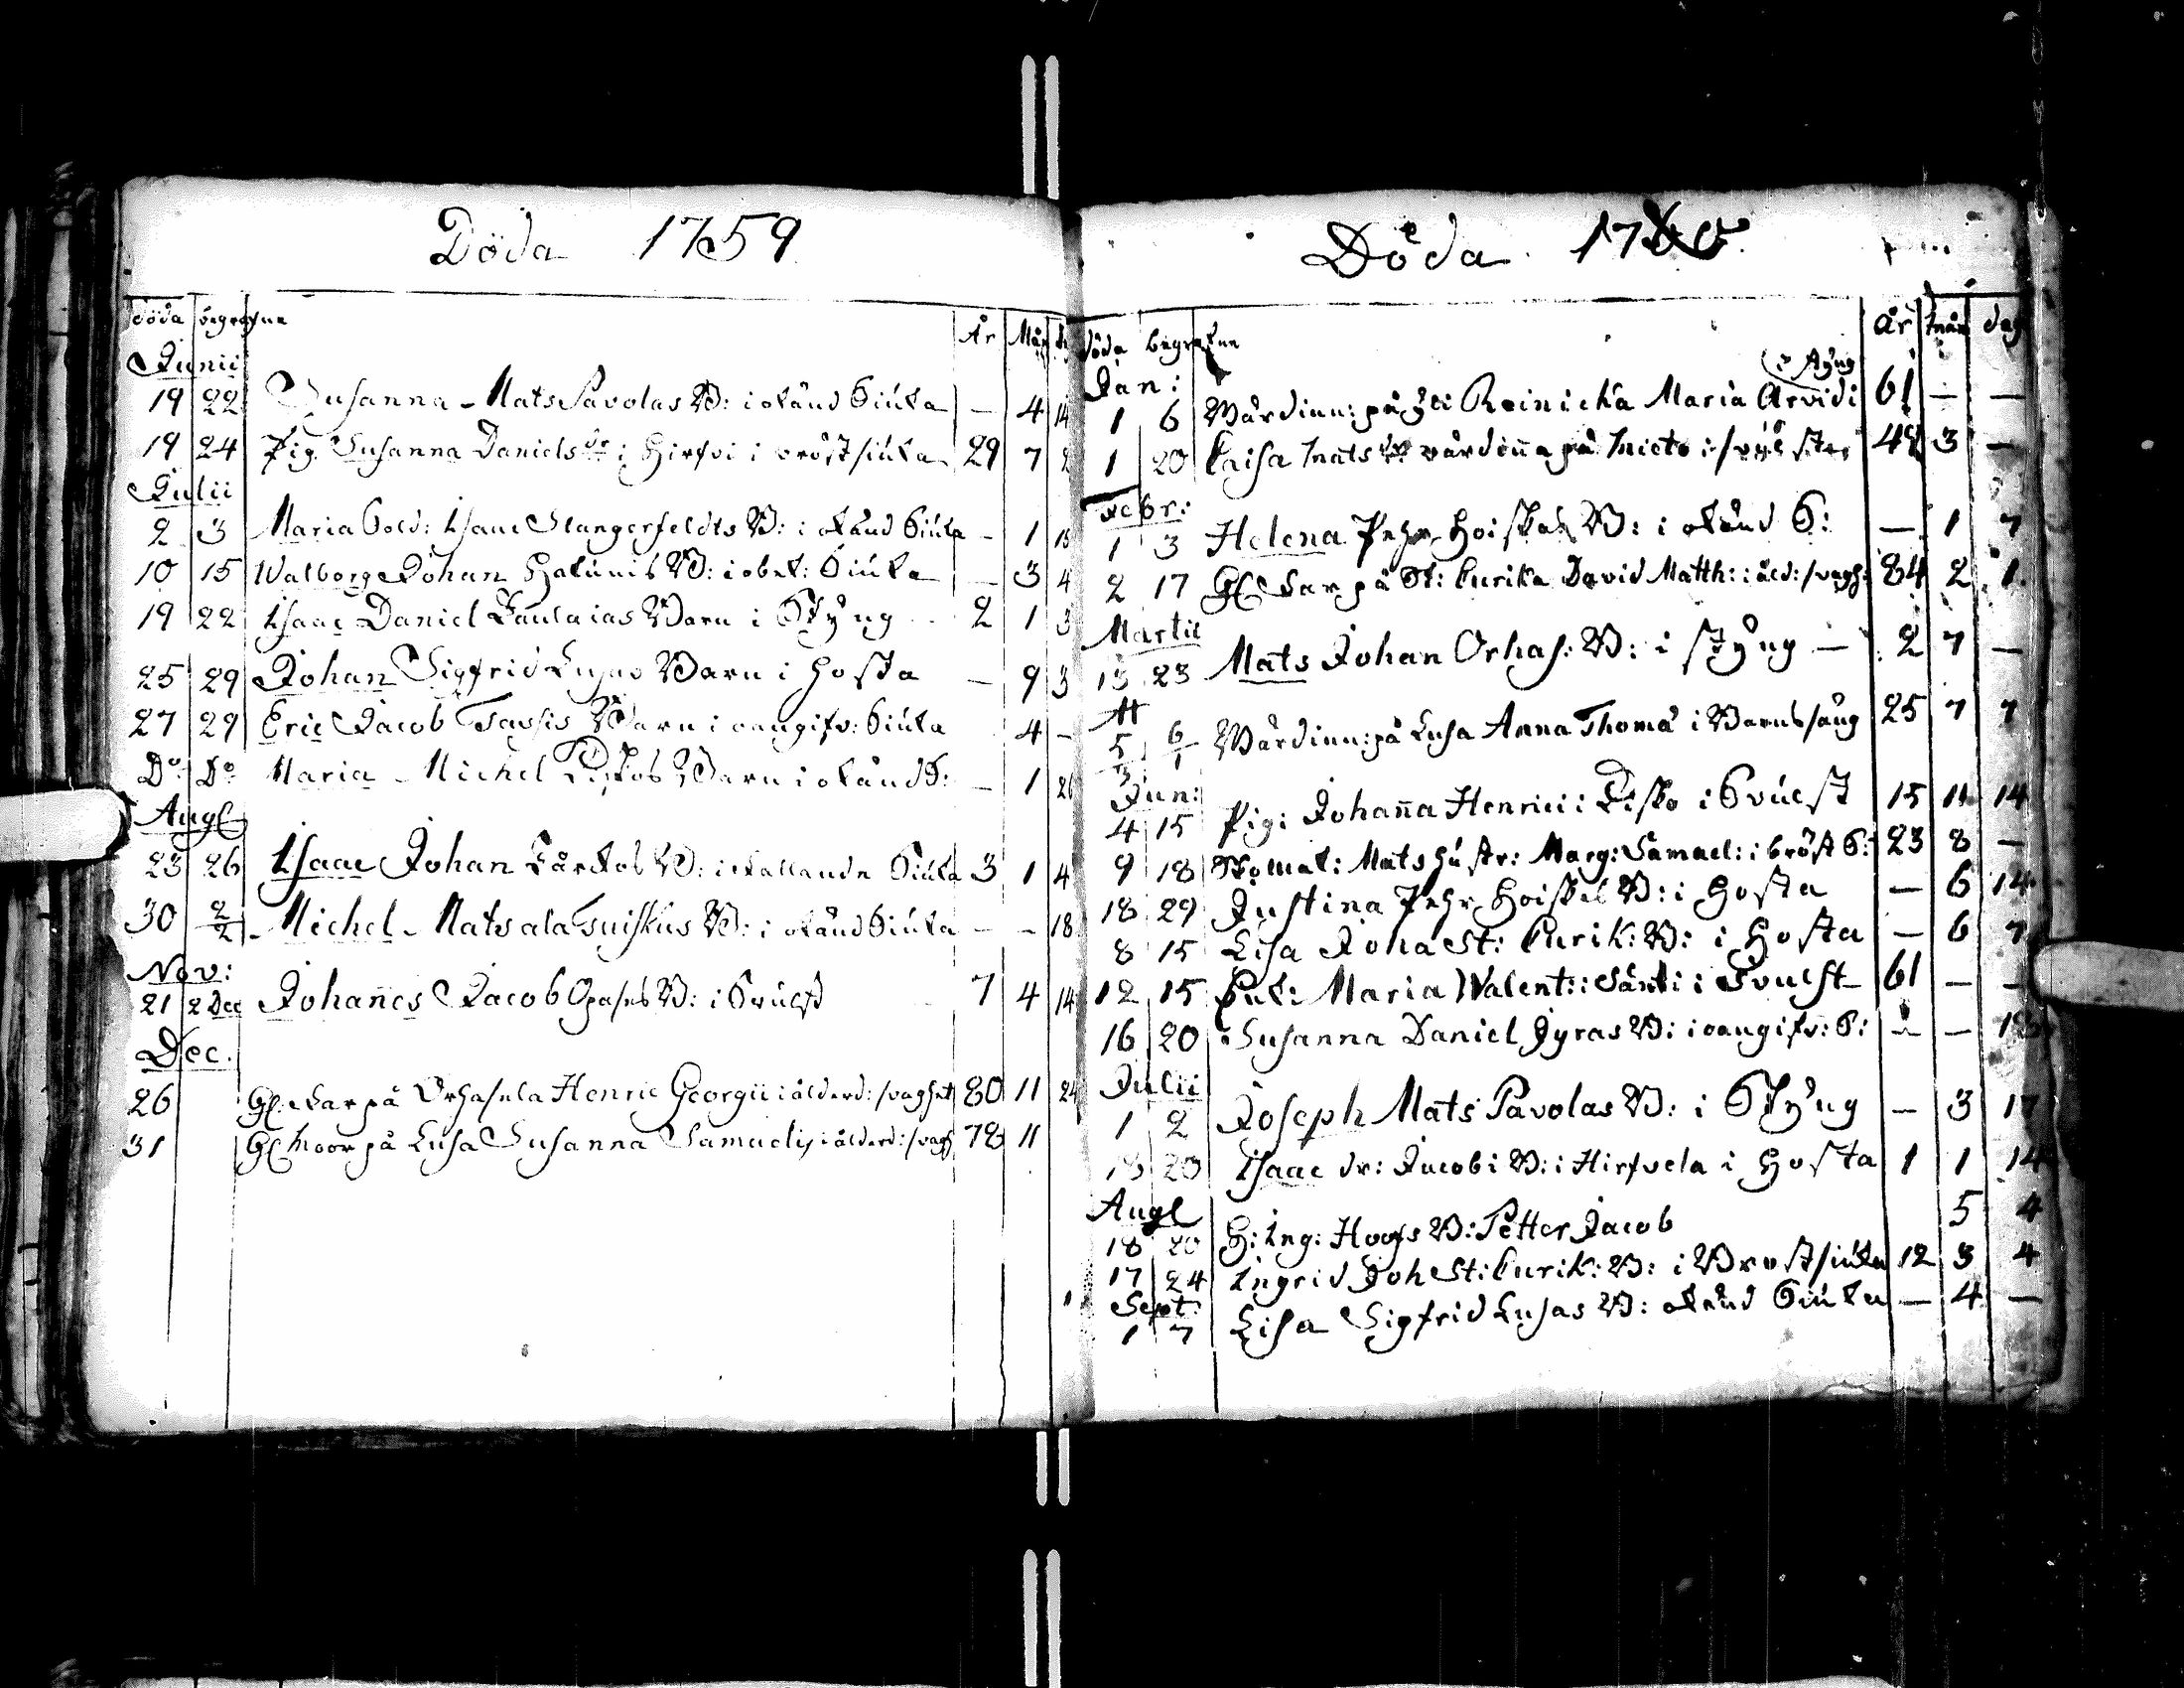 Döda 1759
döda begrafne År Mån
Junii
19 22 Susanna Mats Pavolas B: i okänd Siuka — 4 14
19 24 Pig. Susanna Danielsdr i Hirfvi i bröstsiuka 29 7 2
Julii
2 3 Maria Sold: Isaac Slangerfeldts B: i okänd Siuka — 1 13
10 15 Walborg Johan B: i obek: Siuka — 3 4
19 22 Isaac Daniel Barn i Styng 2 1 3
25 29 Johan Sigfrid Lusas Barn i Hosta — 9 3
27 29 Eric Jacob Barn i oangifv: Siuka 4 —
Do Do Maria Michel Barn i okänd S: — 1 26
Aug
23 26 Isaac Johan B: i fallande Siuka 3 1 4
30 2/2 Michel Mats B: i okänd Siuka — — 18
Nov:
21 2 Dec Johannes Jacob B: i Svulst 7 4 14
Dec.
26 Gl: Far på Orhasula Henric Georgii i ålderd: svaghet 80 11 24
31 Gl Moor på Lusa Susanna Samuelis i ålderd: svagh 78 11
Döda 1760
döda begrafne år mån dag
Jan: i Styng
1 6 Wärdinn: på Reinicka Maria Arvidi 61 — —
1 20 Caisa Matsdr värdinna på Mieto i 48 3 —
Febr:
1 3 Helena Pehr Hoiskal B: i okänd S: — 1 7
2 17 Gl Far på St: Curika David Matth: i åld: svagh: 84 2 1
Martii
13 23 Mats Johan Orhas: B: i styng — 2 7 —
5/3 6/1 Wärdinn: på Lusa Anna Thomæ i Barnssäng 25 7 7
Jun:
4 15 Pig: Johanna Henrici i Lisko i Svulst 15 11 14
9 18 Skomak: Mats Hustr: Marg: Samuel: i bröst S: 23 8 —
18 29 Justina Pehr Hoiskal B: i Hosta — 6 14
8 15 Lisa Joha St: Curik: B: i Hosta — 6 7
12 15 Enk: Maria Walent: i Säntti i Svulst 61 — —
16 20 Susanna Daniel Jyras B: i oangifv: S: — —
Julii
1 2 Joseph Mats Pavolas B: i Styng — 3 17
18 20 Isaac dr: Jacobi B: i Hirfvela i Hosta 1 1 14
Aug
18 20 H: Ing: Hoofs B: Petter Jacob 5 4
17 24 Ingrid Joh St: Curik: B: i Bröstsiuka 12 3 4
Sept:
1 7 Lisa Sigfrid Lusas B: okänd Siuka — 4 —